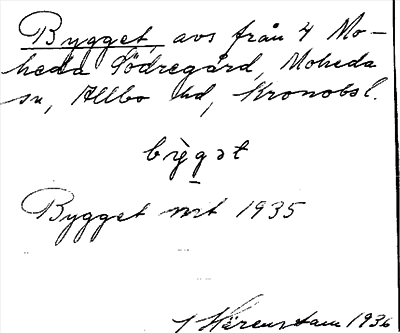 Bygget, avs från 4 Mo-
heda Södregård, Moheda
sn, Allbo hd, Kronobsl.
bỳgət
Bygget mt 1935
Härenstam 1936